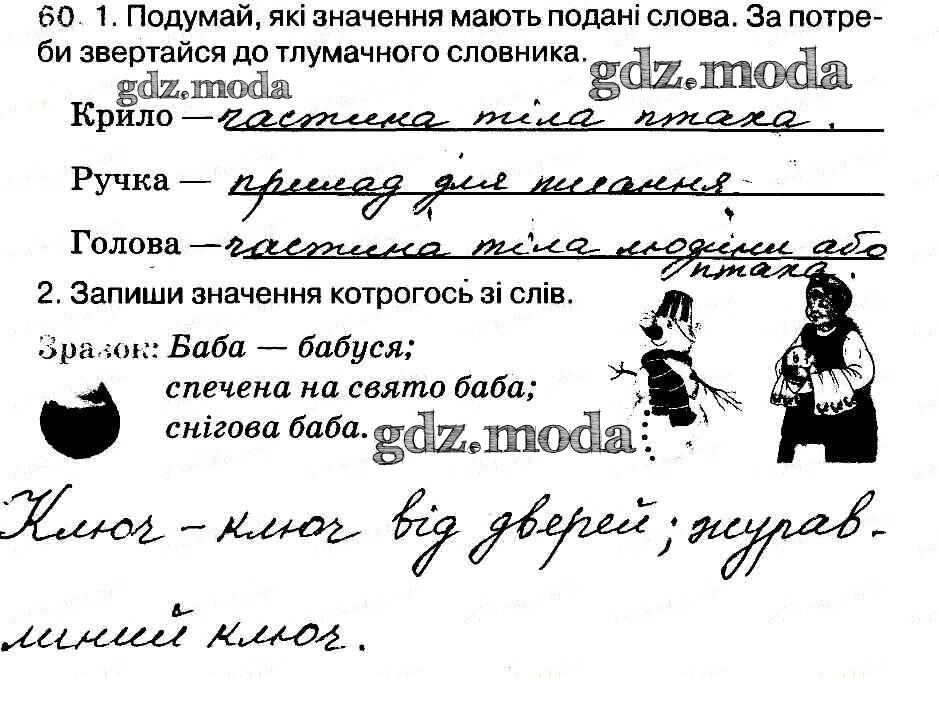 60. 1. Подумай, які значення мають подані слова. За потре-
би звертайся до тлумачного словника.
gdz.moda
gdz.moda
Крило — частина тіла птаха.
Ручка — прилад для писання.
Голова — частина тіла людіни або
птаха.
2. Запиши значення котрогось зі слів.
Зразок: Баба — бабуся;
спечена на свято баба;
снігова баба.
gdz.moda
Ключ - ключ від дверей; журав-
линий ключ.